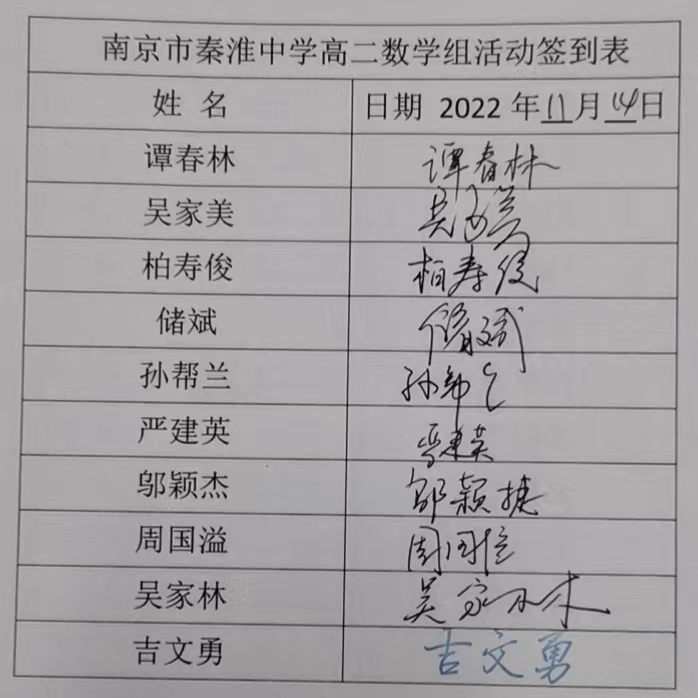 南京市秦淮中学高二数学组活动签到表
姓 名 日期 2022 年11月14日
谭春林 谭春林
吴家美 吴家美
柏寿俊 柏寿俊
储斌 储斌
孙帮兰 孙帮兰
严建英 严建英
邬颖杰 邬颖捷
周国溢 周国溢
吴家林 吴家林
吉文勇 吉文勇